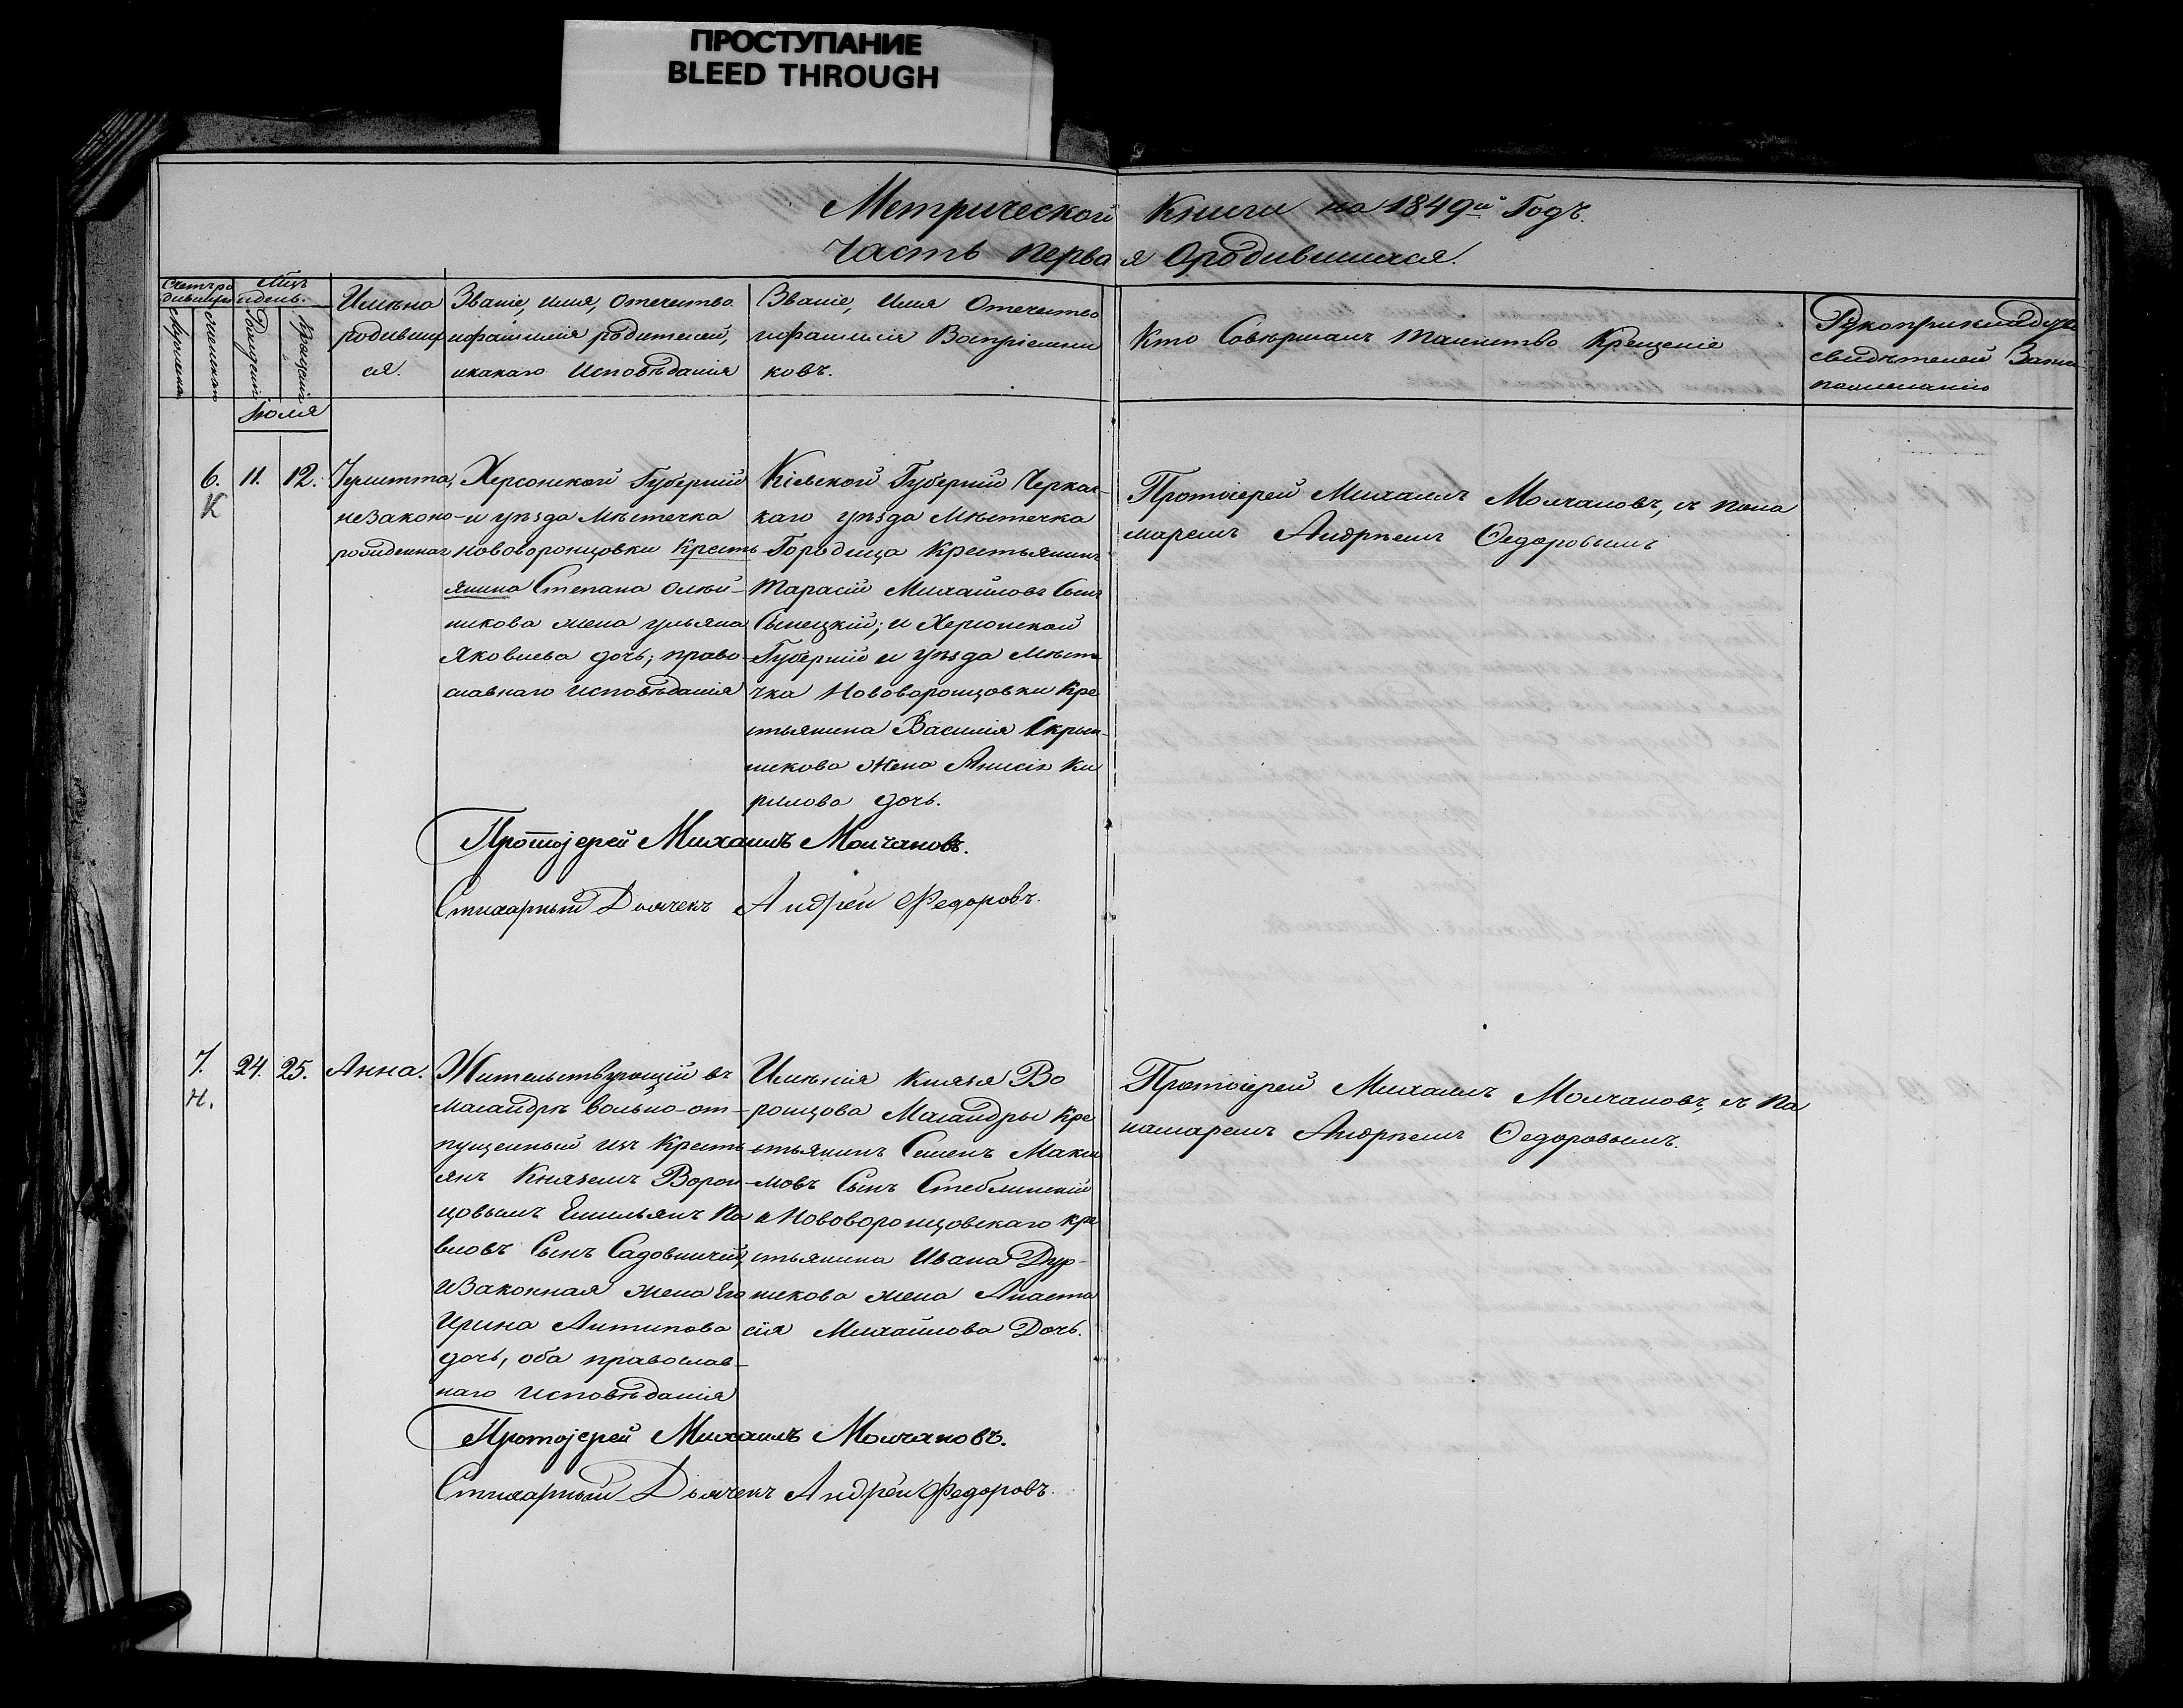 ПРОСТУПАНИЕ
BLEED THROUGH
Метрической Книги на 1849й Годъ.
Часть первая Ородившихся.
Счетъ ро
дившихся
Мцъ
и день.
Мужеска
Женска
Рожденія
Крещенія
Имѣна
родивших
ся.
Званіе, имя, Отечество
ифамилія родителей,
икакаго Исповѣданія
Званіе, Имя Отечество
ифамилія Воспріемни
ковъ.
Кто Совѣршалъ таинство Крещенія
Рукоприкладство
свидѣтелей Запи
пожеланію
Іюля
6.
К
11.
12.
Іулитта,
незаконо-
рожденная
Херсонской Губерніи
и уѣзда Мѣстечка
Нововоронцовки Кресть
янина Степана Олѣй-
никова жена Ульяна
Яковлева дочь; право-
славнаго исповѣданія
Кіевской Губерніи Черкас-
каго уѣзда Мѣстечка
Городища Крестьянинъ
Тарасій Михайловъ Сынъ
Сынецкій; и Херсонской
Губерніи и уѣзда Мѣсте
чка Нововоронцовки Кре
стьянина Василія Скрын-
никова Жена Анисія Ки
рилова дочь.
Протоіерей Михаилъ Молчановъ, съ пона
маремъ Андрѣемъ Ѳедоровымъ
Протоjерей Михаилъ Молчановъ.
Стихарный Дьячекъ Андрей Федоровъ.
7.
н.
24.
25.
Анна.
Жительствующій въ
Масандрѣ вольно-от-
пущенный изъ Кресть
янъ Княземъ Ворон-
цовымъ Емильянъ Па
вловъ Сынъ Садовничій,
иЗаконная жена Его
Ирина Антипова
дочь, оба православ-
наго исповѣданія
Имѣнія Князя Во
ронцова Масандры Кре
стьянинъ Семенъ Макси
мовъ Сынъ Стеблинскій
и Нововоронцовскаго кре
стьянина Ивана Дур-
никова жена Анаста
сія Михайлова Дочь.
Протоіерей Михаилъ Молчановъ, съ По
намаремъ Андрѣемъ Ѳедоровымъ.
Протоjерей Михаилъ Молчановъ.
Стихарный Дьячекъ Андрей Федоровъ.